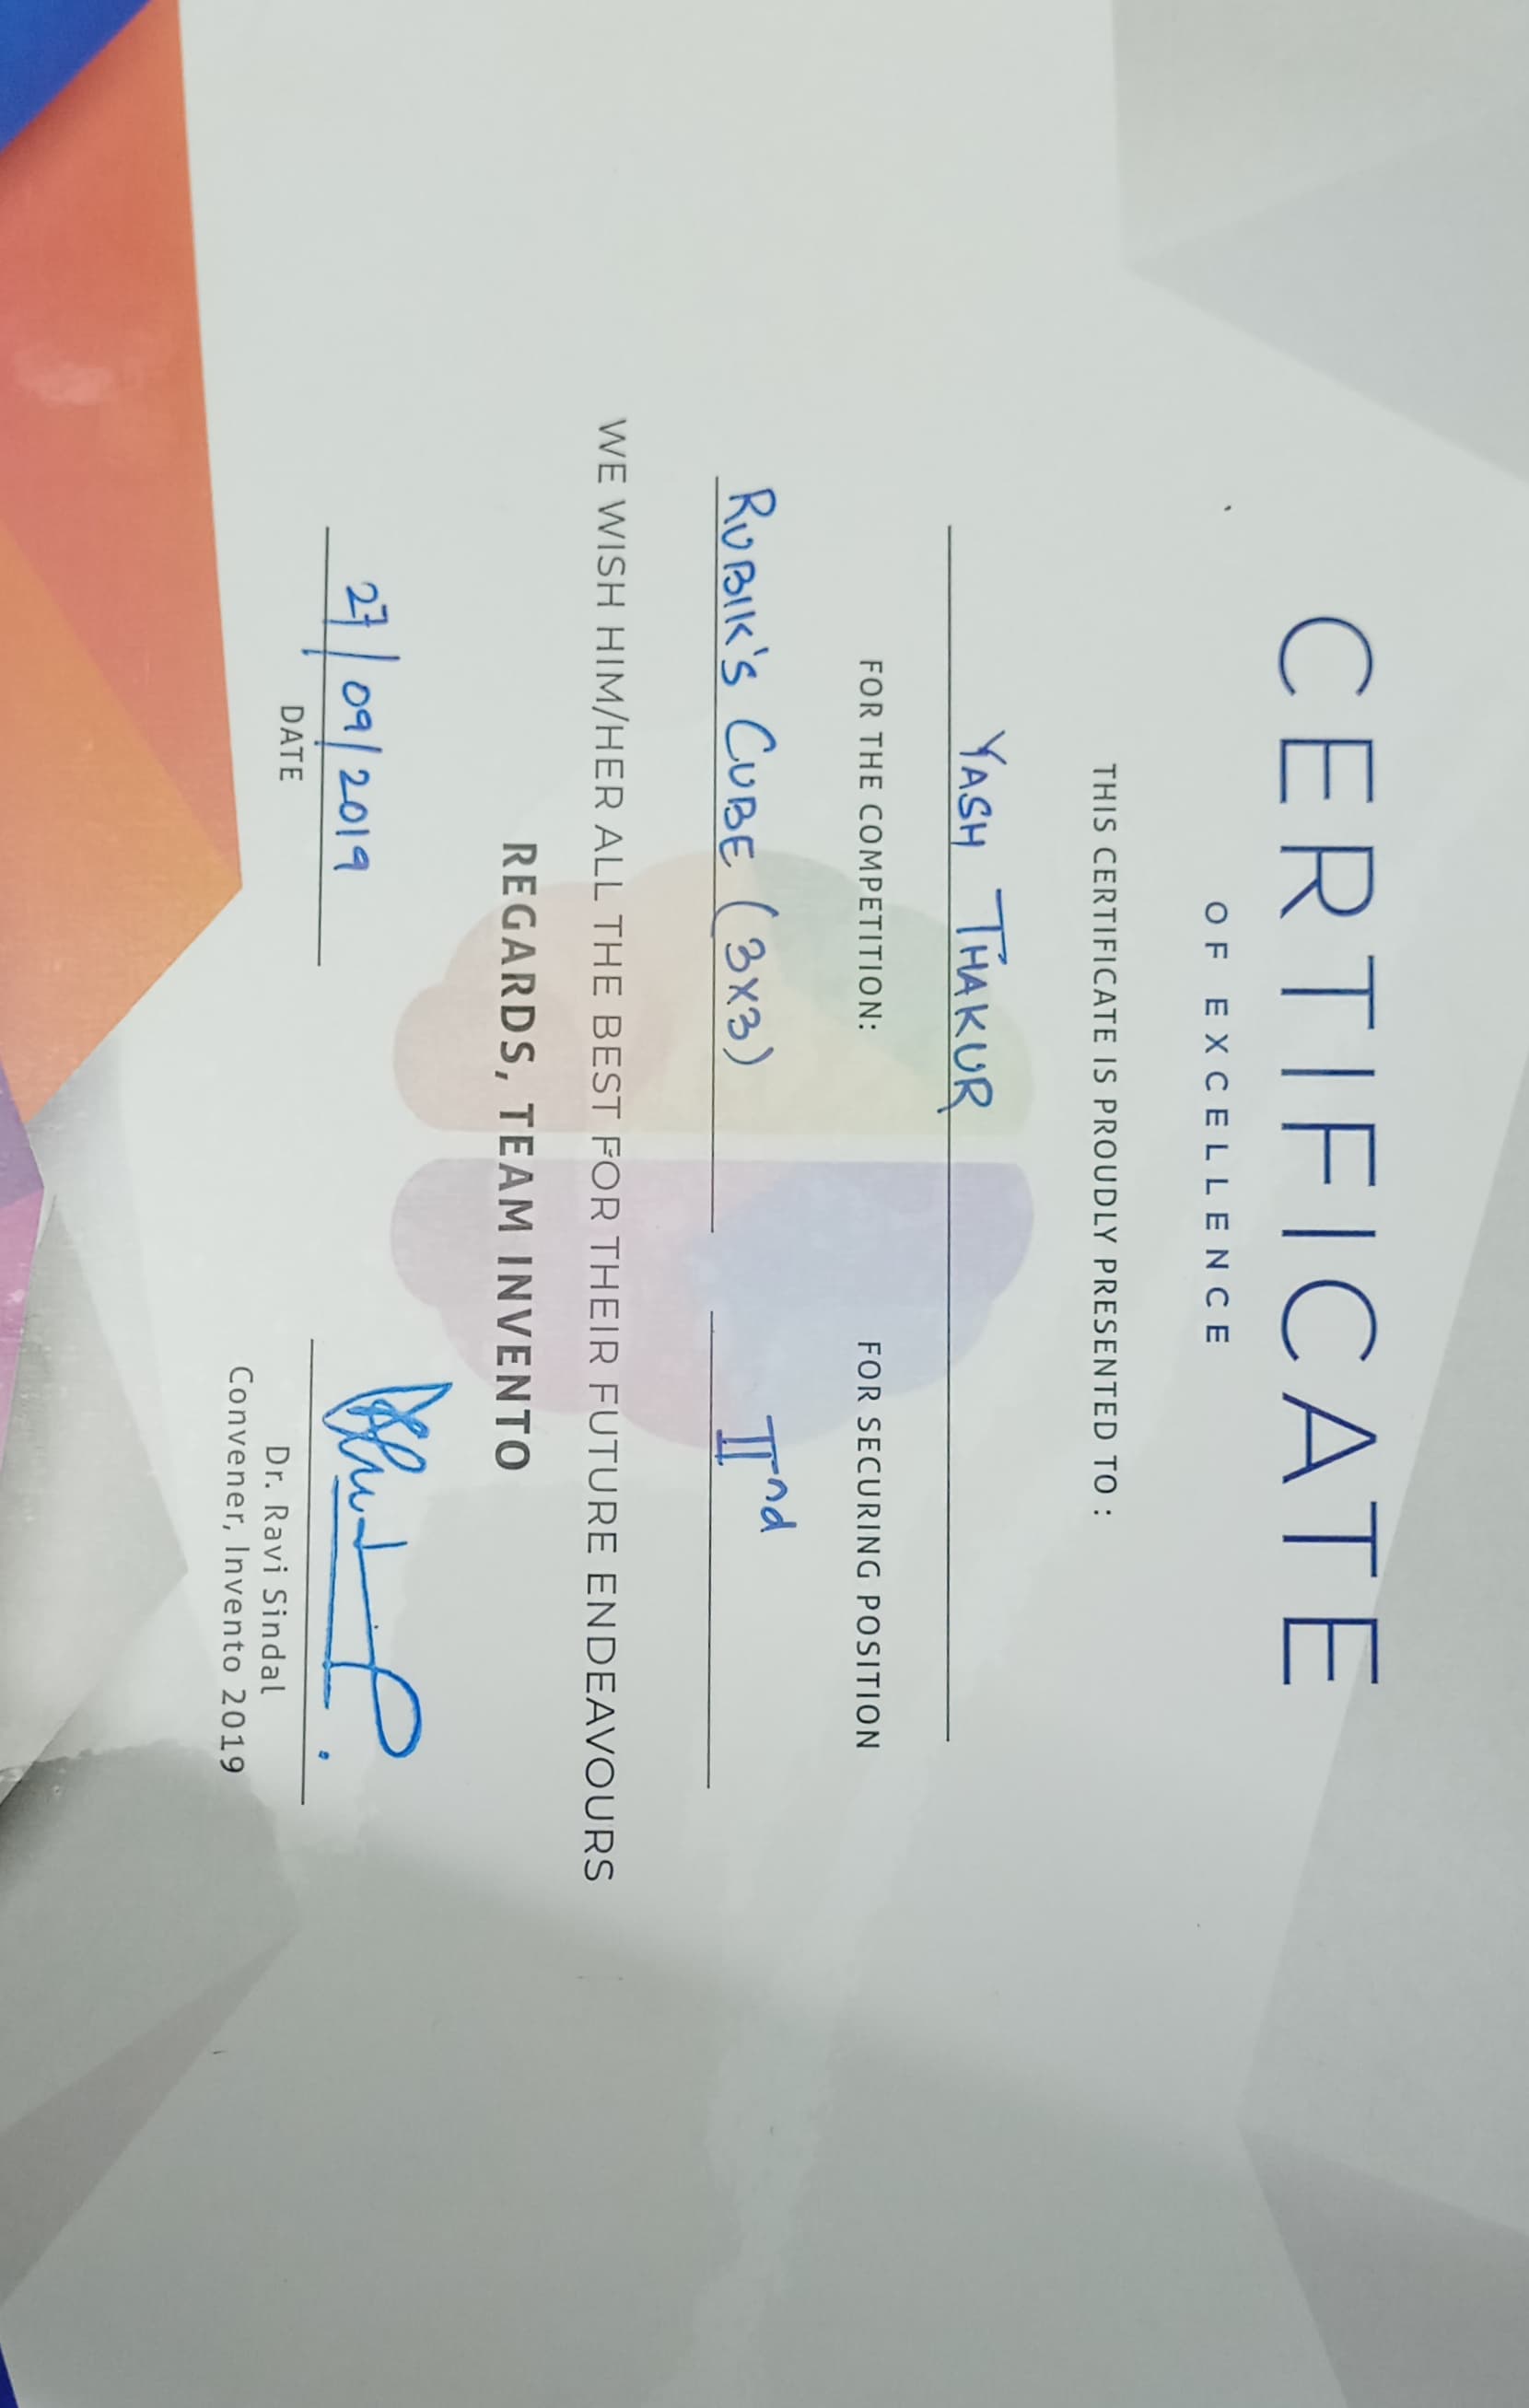 CERTIFICATE
OF EXCELLENCE
THIS CERTIFICATE IS PROUDLY PRESENTED TO :
YASH THAKUR
FOR THE COMPETITION: FOR SECURING POSITION
RUBIK'S CUBE (3X3) IInd
WE WISH HIM/HER ALL THE BEST FOR THEIR FUTURE ENDEAVOURS
REGARDS, TEAM INVENTO
27/09/2019
DATE
Dr. Ravi Sindal
Convener, Invento 2019